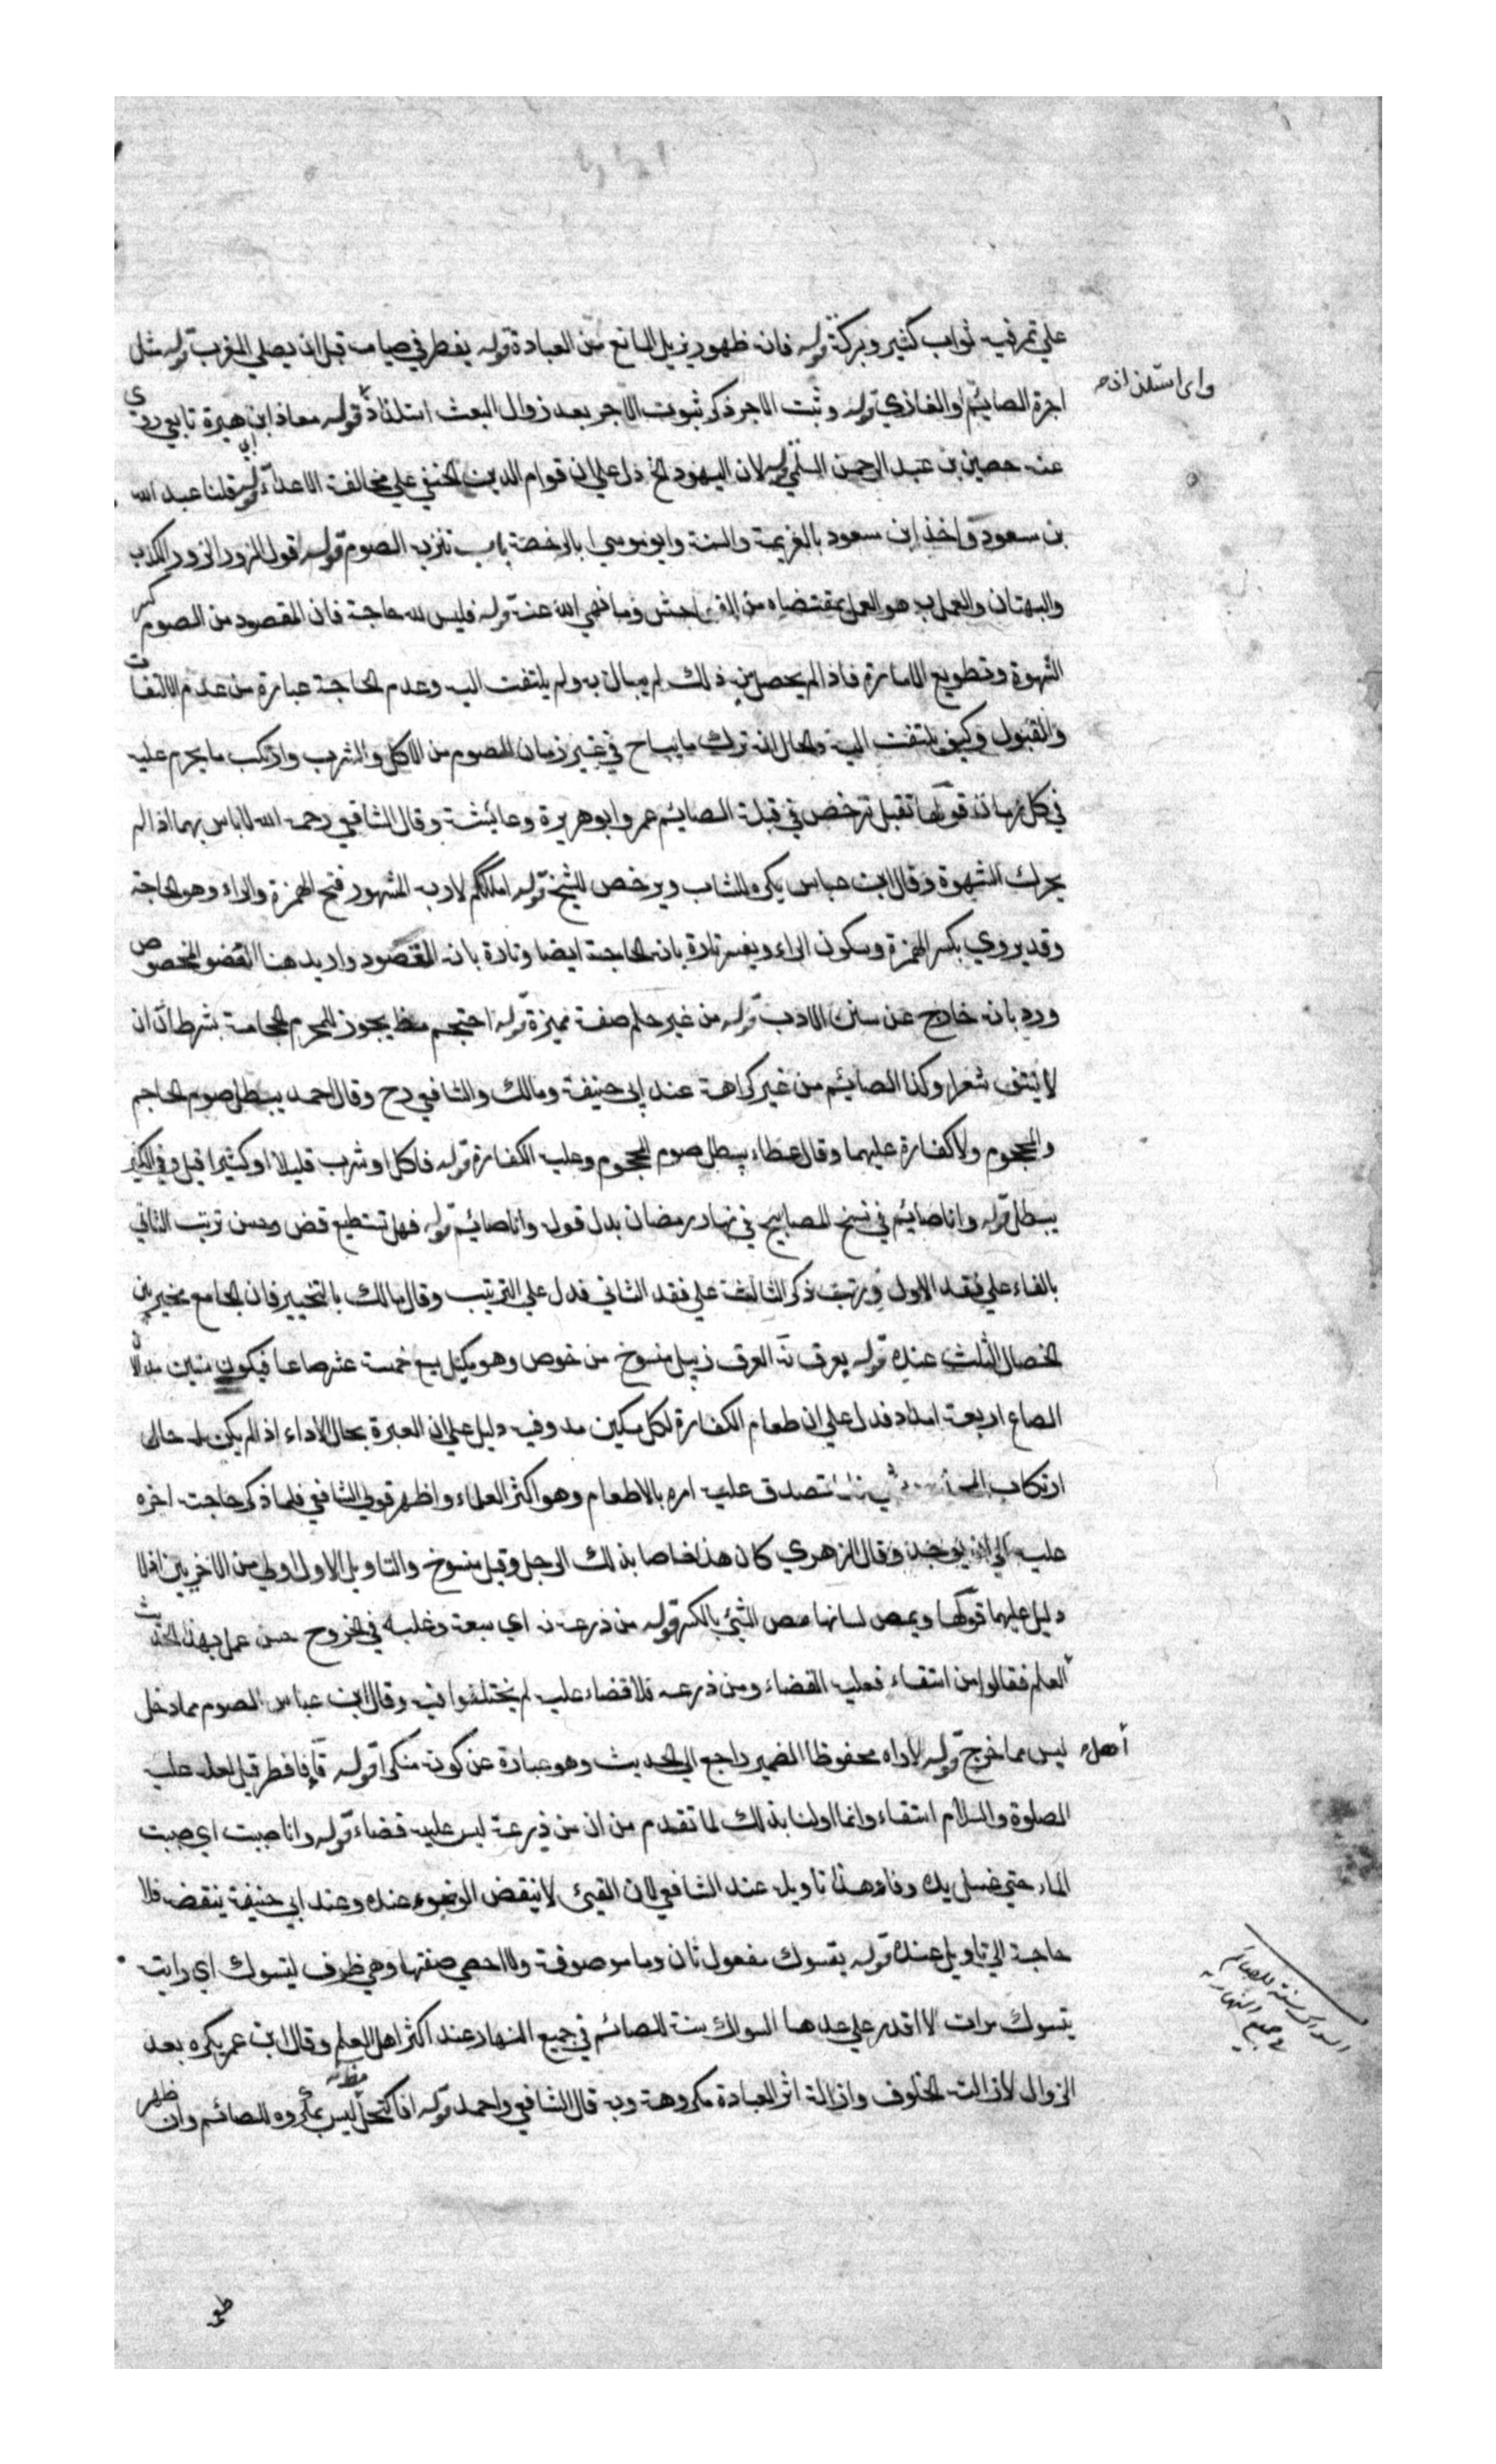 علي تمر فيه ثواب كثير وبركة قوله فانه ظهور يزيل المانع من العبادة قوله يفطر في صيامه قبل ان يصلي المغرب قوله مثل
وای استلذاذه
اجرة الصائم او الغازي قوله وثبت الاجر ذكر ثبوت الاجر بعد زوال البعث استلذاذ قوله معاذ ابن هبرة تابعي روي
عنه حصين بن عبد الرحمن السلمي قوله لان اليهود الخ دل علي ان قوام الدين الحنفي علي مخالفة الاعداء قوله قلنا عبد الله
بن سعود واخذ ابن سعود بالغريمة والسنة وابو موسي بالرخصة باب تنزيه الصوم قوله قول الزور الزور الكذب
والبهتان والعمل به هو العمل بمقتضاه من الفواحش وما نهي الله عنه قوله فليس لله حاجة فان المقصود من الصوم كسر
الشهوة وتطويع الامارة فاذا لم يحصل من ذلك لم يبال به ولم يلتفت اليه وعدم الحاجة عبارة من عدم الالتفات
والقبول وكيف يلتفت اليه والحال انه ترك ما يباح في غير زمان الصوم من الاكل والشرب وارتكب ما يحرم عليه
في كل زمان قولها تقبل ترخص في قبلة الصائم عمر وابو هريرة وعائشة وقال الشافعي رحمه الله لا باس بها اذا لم
يحرك الشهوة وقال ابن عباس يكره للشاب ويرخص للشيخ قوله املككم لاربه المشهور فتح الهمزة والراء وهو الحاجة
وقد يروي بكسر الهمزة وسكون الراء ويفسر تارة بانه الحاجة ايضا وتارة بانه المقصود واريد هنا العضو المخصوص
ورد بانه خارج عن سنن الادب قوله من غير حلم صفة مميزة قوله احتجم مظ يجوز للمحرم الحجامة بشرط ان
لا ينتف شعرا وكذا الصائم من غير كراهة عند ابي حنيفة ومالك والشافعي رح وقال احمد يبطل صوم الحاجم
والمحجوم ولا كفارة عليهما وقال عطاء يبطل صوم المحجوم وعليه الكفارة قوله فاكل او شرب قليلا او كثيرا قيل وفي الكثير
يبطل قوله وانا صائم في نسخ المصابيح في نهار رمضان بدل قوله وانا صائم قوله فهل تستطيع قض وحسن ترتب الثاني
بالفاء علي فقد الاول وبترتيب ذكر الثالث علي فقد الثاني فدل علي الترتيب وقال مالك بالتخيير فان الجامع مخير بين
الخصال الثلث عنده قوله بعرق نه العرق زبيل منسوخ من خوص وهو مكتل يسع خمسة عشر صاعا فيكون ستين مدا لان
الصاع اربعة امداد فدل علي ان طعام الكفارة لكل مسكين مد وفيه دليل علي ان العبرة بحال الاداء اذ لم يكن له حال
ارتكاب تصدق عليه امره بالاطعام وهو اكثر العلماء واظهر قولي الشافعي فلما ذكر حاجته اخره
عليه الي ان يوجد وقال الزهري كان هذا خاصا بذلك الرجل وقيل منسوخ والتاويل الاول اولي من الاخرين اذ لا
دليل عليهما قولها ويمص لسانها مص الشيئ بالكسر قوله من ذرعه نه اي سبقه وغلبه في الخروج حسن عمل بهذا الحديث
العلم فقالوا من استقاء فعليه القضاء ومن ذرعه فلا قضاء عليه لم يختلفوا فيه وقال ابن عباس الصوم مما دخل
اهل
ليس مما خرج قوله لا اراه محفوظا الضمير راجع الي الحديث وهو عبارة عن كونه منكرا قوله قاء فافطر قيل لعله عليه
الصلوة والسلام استقاء وانما اولنا بذلك لما تقدم من ان من ذرعه ليس عليه قضاء قوله وانا صببت اي صببت
الماء حتي غسل يده وفاه وهذا تاويله عند الشافعي لان القيئ لا ينقض الوضوء عنده وعند ابي حنيفة ينقض فلا
حاجة الي تاويل عنده قوله يتسوك مفعول ثان وما موصوفة ولا احصي صفتها وهي ظرف ليتسوك اي رايته
يتسوك مرات لا اقدر علي عدها السواك سنة للصائم في جميع النهار عند اكثر اهل العلم وقال ابن عمر يكره بعد
السواك سنة للصائم
في جميع النهار
الزوال لازالته الخلوف وازالة اثر العبادة مكروهة وبه قال الشافعي واحمد قوله افاكتحل ليس بمكروه للصائم وان ظهر